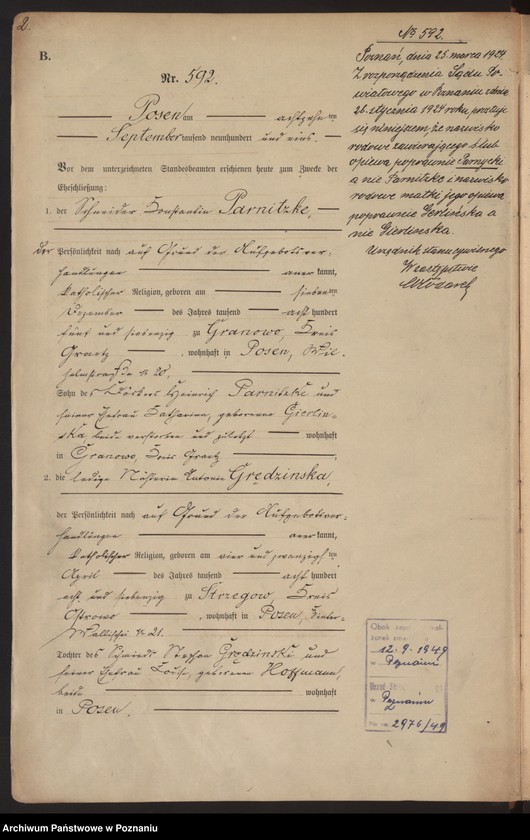 2.
B.
Nr. 592.
Posen am achtzehnten
September tausend neunhundert und eins.
Vor dem unterzeichneten Standesbeamten erschienen heute zum Zwecke der
Eheschließung:
1. der Schneider Constantin Parnitzke,
der Persönlichkeit nach auf Grund der Aufgebotsver-
handlungen anerkannt,
katholischer Religion, geboren am siebenten
Dezember des Jahres tausend achthundert
fünf und siebenzig zu Granowo, Kreis
Graetz, wohnhaft in Posen, Wil-
helmstraße № 20,
Sohn des Heinrich Parnitzke und
seiner Ehefrau Catharina, geborenen Gierlin-
ska, beide verstorben und zuletzt wohnhaft
in Granowo, Kreis Graetz.
2. die ledige Näherin Antonie Grędzinska,
der Persönlichkeit nach auf Grund der Aufgebotsver-
handlungen anerkannt,
katholischer Religion, geboren am vier und zwanzigsten
April des Jahres tausend achthundert
acht und siebenzig zu Strzegow, Kreis
Ostrowo, wohnhaft in Posen, Hinter-
Wallischei № 21.
Tochter des Schmieds Stephan Grędzinski und
seiner Ehefrau Louise, geborenen Hoffmann,
beide wohnhaft
in Posen.
№ 592.
Poznań, dnia 25. marca 1924.
Z rozporządzenia Sądu Po-
wiatowego w Poznaniu z dnia
26. stycznia 1924 roku, prostuje
się niniejszem, że nazwisko
rodowe zawierającego ślub
opiewa poprawnie Parnycki
a nie Parnitzke i nazwisko
rodowe matki jego opiewa
poprawnie Gerlińska a
nie Gierlinska.
Urzędnik stanu cywilnego
W zastępstwie
Obok
12.9.1949
w Poznaniu
Urząd
w Poznaniu
2976/49
Archiwum Państwowe w Poznaniu